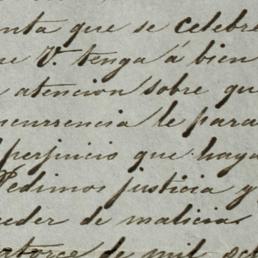 nta que se celebre
ue V. tenga á bien
atencion sobre qu
currencia le para
perjuicio que haya
Pedimos justicia y
ceder de malicia
atorce de mil och